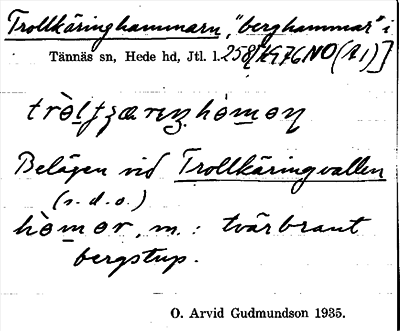 Trollkäringhammarn, "berghammar" i
Tännäs sn, Hede hd, Jtl. l. 258/1976 NO (A1)]
Belägen vid Trollkäringvallen
(s.d.o.)
m.: tvärbrant
bergstup.
O. Arvid Gudmundson 1935.